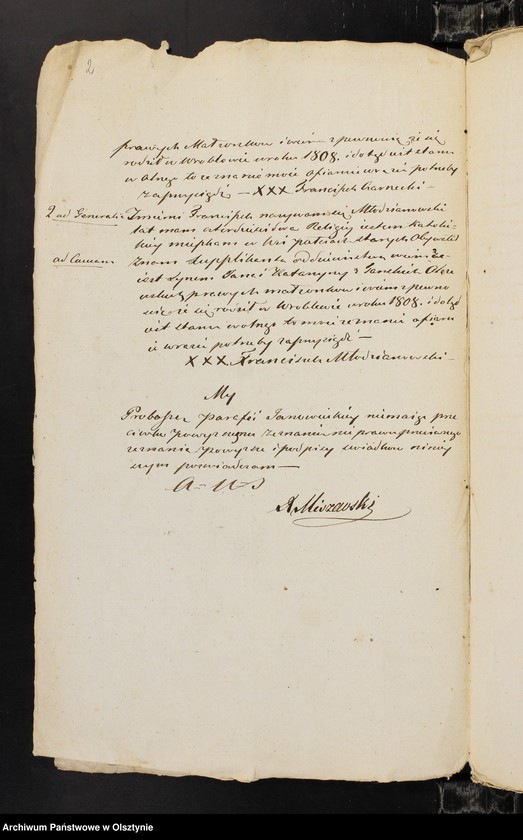 2
prawych Małżonków i wiem z pewnością że się
rodził w Wróblewie w roku 1808. i dotąd iest stanu
wolnego to zeznanie moie ofiaruię w razie potrzeby
zaprzysiądz — XXX Franciszek Czarnecki —
2 ad Generalia Imieniem Franciszek nazywam się Młodzianowski
lat mam czterdzieści dwa Religii iestem katolic
kiey mieszkam w Wsi
ad Causam Znam Supplikanta od dzieciństwa wiem że
iest synem Pawła Katarzyny z
prawych małżonków i wiem z pewno
ścią że się rodził w Wróblewie w roku 1808. i dotąd
iest stanu wolnego to moie zeznanie ofiaru
ię w razie potrzeby zaprzysiądz —
XXX Franciszek Młodzianowski —
My
Proboszcz Parafii Janowieckiey nie maiąc prze
ciwko powyższemu zeznaniu nic prawu przeciwnego
zeznanie powyższe i podpisy świadków niniey
szym poświadczam —
A. Mierzawski
Archiwum Państwowe w Olsztynie